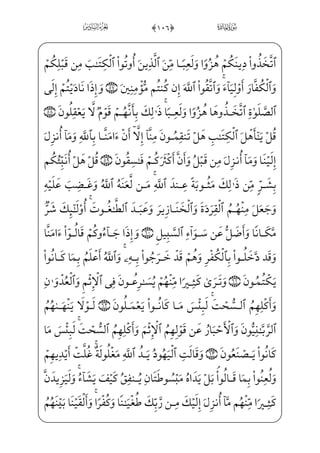 الجزء السادس ﴿١٠٦﴾ سورة المائدة
ٱتَّخَذُوا۟ دِينَكُمْ هُزُوًا وَلَعِبًا مِّنَ ٱلَّذِينَ أُوتُوا۟ ٱلْكِتَـٰبَ مِن قَبْلِكُمْ
وَٱلْكُفَّارَ أَوْلِيَآءَ ۚ وَٱتَّقُوا۟ ٱللَّهَ إِن كُنتُم مُّؤْمِنِينَ ۝٥٧ وَإِذَا نَادَيْتُمْ إِلَى
ٱلصَّلَوٰةِ ٱتَّخَذُوهَا هُزُوًا وَلَعِبًا ۚ ذَٰلِكَ بِأَنَّهُمْ قَوْمٌ لَّا يَعْقِلُونَ ۝٥٨
قُلْ يَـٰٓأَهْلَ ٱلْكِتَـٰبِ هَلْ تَنقِمُونَ مِنَّآ إِلَّآ أَنْ ءَامَنَّا بِٱللَّهِ وَمَآ أُنزِلَ
إِلَيْنَا وَمَآ أُنزِلَ مِن قَبْلُ وَأَنَّ أَكْثَرَكُمْ فَـٰسِقُونَ ۝٥٩ قُلْ هَلْ أُنَبِّئُكُم
بِشَرٍّ مِّن ذَٰلِكَ مَثُوبَةً عِندَ ٱللَّهِ ۚ مَن لَّعَنَهُ ٱللَّهُ وَغَضِبَ عَلَيْهِ
وَجَعَلَ مِنْهُمُ ٱلْقِرَدَةَ وَٱلْخَنَازِيرَ وَعَبَدَ ٱلطَّـٰغُوتَ ۚ أُو۟لَـٰٓئِكَ شَرٌّ
مَّكَانًا وَأَضَلُّ عَن سَوَآءِ ٱلسَّبِيلِ ۝٦٠ وَإِذَا جَآءُوكُمْ قَالُوٓا۟ ءَامَنَّا
وَقَد دَّخَلُوا۟ بِٱلْكُفْرِ وَهُمْ قَدْ خَرَجُوا۟ بِهِۦ ۚ وَٱللَّهُ أَعْلَمُ بِمَا كَانُوا۟
يَكْتُمُونَ ۝٦١ وَتَرَىٰ كَثِيرًا مِّنْهُمْ يُسَـٰرِعُونَ فِى ٱلْإِثْمِ وَٱلْعُدْوَٰنِ
وَأَكْلِهِمُ ٱلسُّحْتَ ۚ لَبِئْسَ مَا كَانُوا۟ يَعْمَلُونَ ۝٦٢ لَوْلَا يَنْهَىٰهُمُ
ٱلرَّبَّـٰنِيُّونَ وَٱلْأَحْبَارُ عَن قَوْلِهِمُ ٱلْإِثْمَ وَأَكْلِهِمُ ٱلسُّحْتَ ۚ لَبِئْسَ مَا
كَانُوا۟ يَصْنَعُونَ ۝٦٣ وَقَالَتِ ٱلْيَهُودُ يَدُ ٱللَّهِ مَغْلُولَةٌ ۚ غُلَّتْ أَيْدِيهِمْ
وَلُعِنُوا۟ بِمَا قَالُوا۟ ۘ بَلْ يَدَاهُ مَبْسُوطَتَانِ يُنفِقُ كَيْفَ يَشَآءُ ۚ وَلَيَزِيدَنَّ
كَثِيرًا مِّنْهُم مَّآ أُنزِلَ إِلَيْكَ مِن رَّبِّكَ طُغْيَـٰنًا وَكُفْرًا ۚ وَأَلْقَيْنَا بَيْنَهُمُ